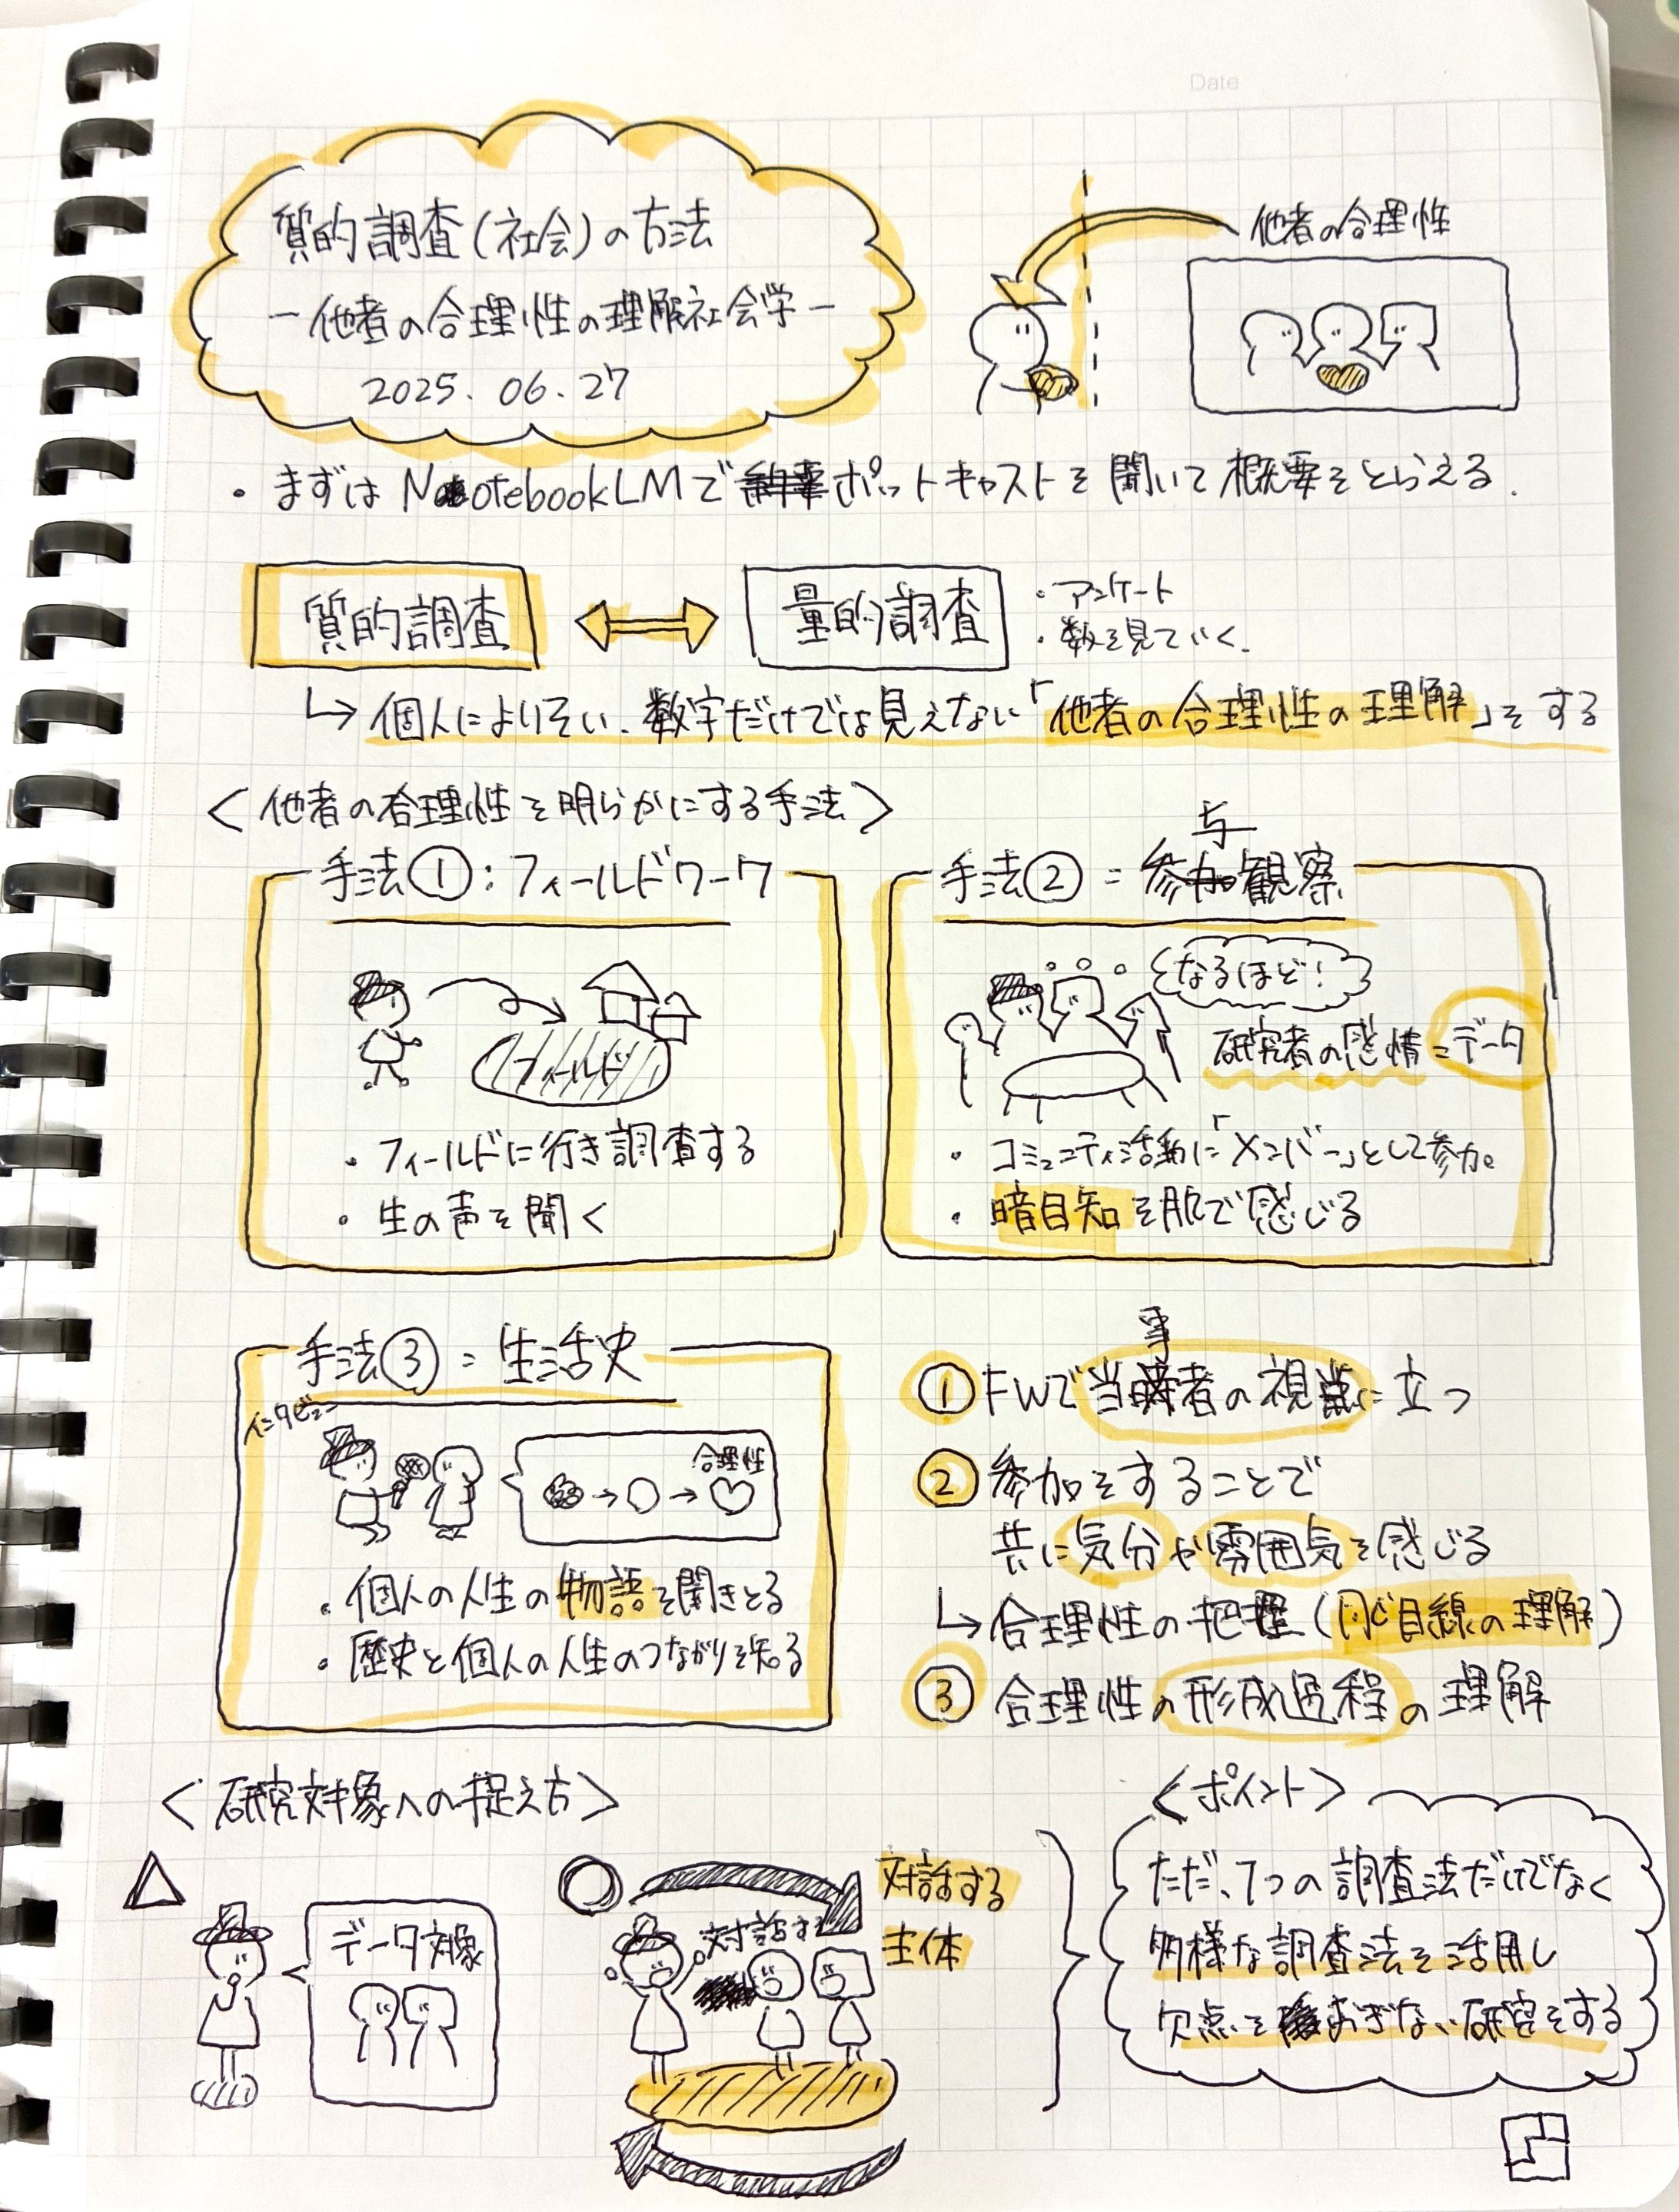 Date
質的調査(社会)の方法
他者の合理性
－他者の合理性の理解社会学－
2025.06.27
・まずは NotebookLMで ポットキャストを聞いて概要をとらえる.
質的調査
量的調査
・アンケート
・数を見ていく.
↳ 個人によりそい、数字だけでは見えない「他者の合理性の理解」をする
<他者の合理性を明らかにする手法>
手法①:フィールドワーク
フィールド
・フィールドに行き調査する
・生の声を聞く
手法② = 参与観察
なるほど!
研究者の感情=データ
・コミュニティ活動に「メンバー」として参加。
・暗目知を肌で感じる
手法③ = 生活史
インタビュー
合理性
・個人の人生の物語を聞きとる
・歴史と個人の人生のつながりを知る
① FWで当事者の視点に立つ
② 参加をすることで
共に気分や雰囲気を感じる
↳ 合理性の把握(同じ目線の理解)
③ 合理性の形成過程の理解
<研究対象への捉え方>
データ対象
対話する
対話する
主体
<ポイント>
ただ、1つの調査法だけでなく
多様な調査法を活用し
欠点をおぎない研究をする